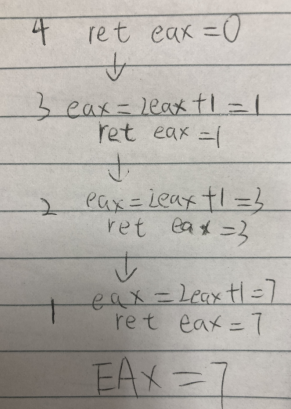 4 ret eax = 0
↓
3 eax = 2eax + 1 = 1
ret eax = 1
↓
2 eax = 2eax + 1 = 3
ret eax = 3
↓
1 eax = 2eax + 1 = 7
ret eax = 7
EAX = 7